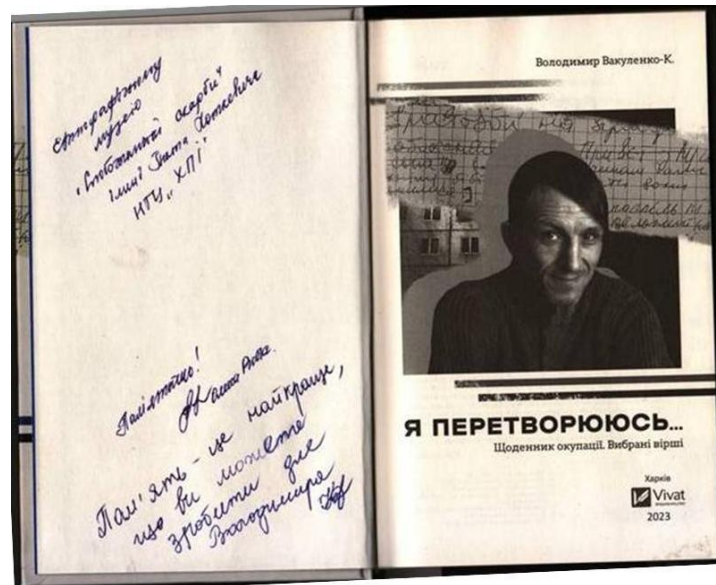 Етнографічному
музею
"Слобожанські скарби"
імені Гната Хоткевича
НТУ "ХПІ"
Пам'ятаємо!
Пам'ять - це найкраще,
що ви можете
зробити для
Володимира
Володимир Вакуленко-К.
Я ПЕРЕТВОРЮЮСЬ...
Щоденник окупації. Вибрані вірші
Харків
Vivat
видавництво
2023